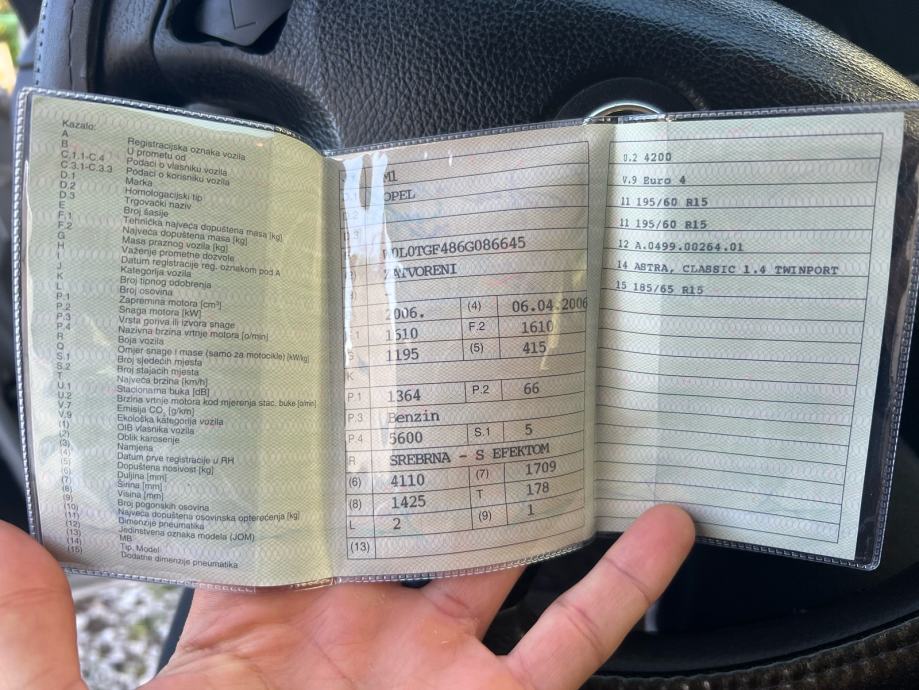 Kazalo:
A Registracijska oznaka vozila
B U prometu od
C.1.1-C.4 Podaci o vlasniku vozila
C.3.1-C.3.3 Podaci o korisniku vozila
D.1 Marka
D.2 Homologacijski tip
D.3 Trgovački naziv
E Broj šasije
F.1 Tehnička najveća dopuštena masa [kg]
F.2 Najveća dopuštena masa [kg]
G Masa praznog vozila [kg]
H Važenje prometne dozvole
I Datum registracije reg. oznakom pod A
J Kategorija vozila
K Broj tipnog odobrenja
L Broj osovina
P.1 Zapremina motora [cm³]
P.2 Snaga motora [kW]
P.3 Vrsta goriva ili izvora snage
P.4 Nazivna brzina vrtnje motora [o/min]
R Boja vozila
Q Omjer snage i mase (samo za motocikle) [kW/kg]
S.1 Broj sjedećih mjesta
S.2 Broj stajaćih mjesta
T Najveća brzina [km/h]
U.1 Stacionarna buka [dB]
U.2 Brzina vrtnje motora kod mjerenja stac. buke [o/min]
V.7 Emisija CO₂ [g/km]
V.9 Ekološka kategorija vozila
(1) OIB vlasnika vozila
(2) Oblik karoserije
(3) Namjena
(4) Datum prve registracije u RH
(5) Dopuštena nosivost [kg]
(6) Duljina [mm]
(7) Širina [mm]
(8) Visina [mm]
(9) Broj pogonskih osovina
(10) Najveća dopuštena osovinska opterećenja [kg]
(11) Dimenzije pneumatika
(12) Jedinstvena oznaka modela (JOM)
(13) MB
(14) Tip, Model
(15) Dodatne dimenzije pneumatika
M1
OPEL
W0L0TGF486G086645
ZATVORENI
2006. (4) 06.04.2006
1610 F.2 1610
1195 (5) 415
K
P.1 1364 P.2 66
P.3 Benzin
P.4 5600 S.1 5
R SREBRNA - S EFEKTOM
(6) 4110 (7) 1709
(8) 1425 T 178
L 2 (9) 1
(13)
U.2 4200
V.9 Euro 4
11 195/60 R15
11 195/60 R15
12 A.0499.00264.01
14 ASTRA, CLASSIC 1.4 TWINPORT
15 185/65 R15